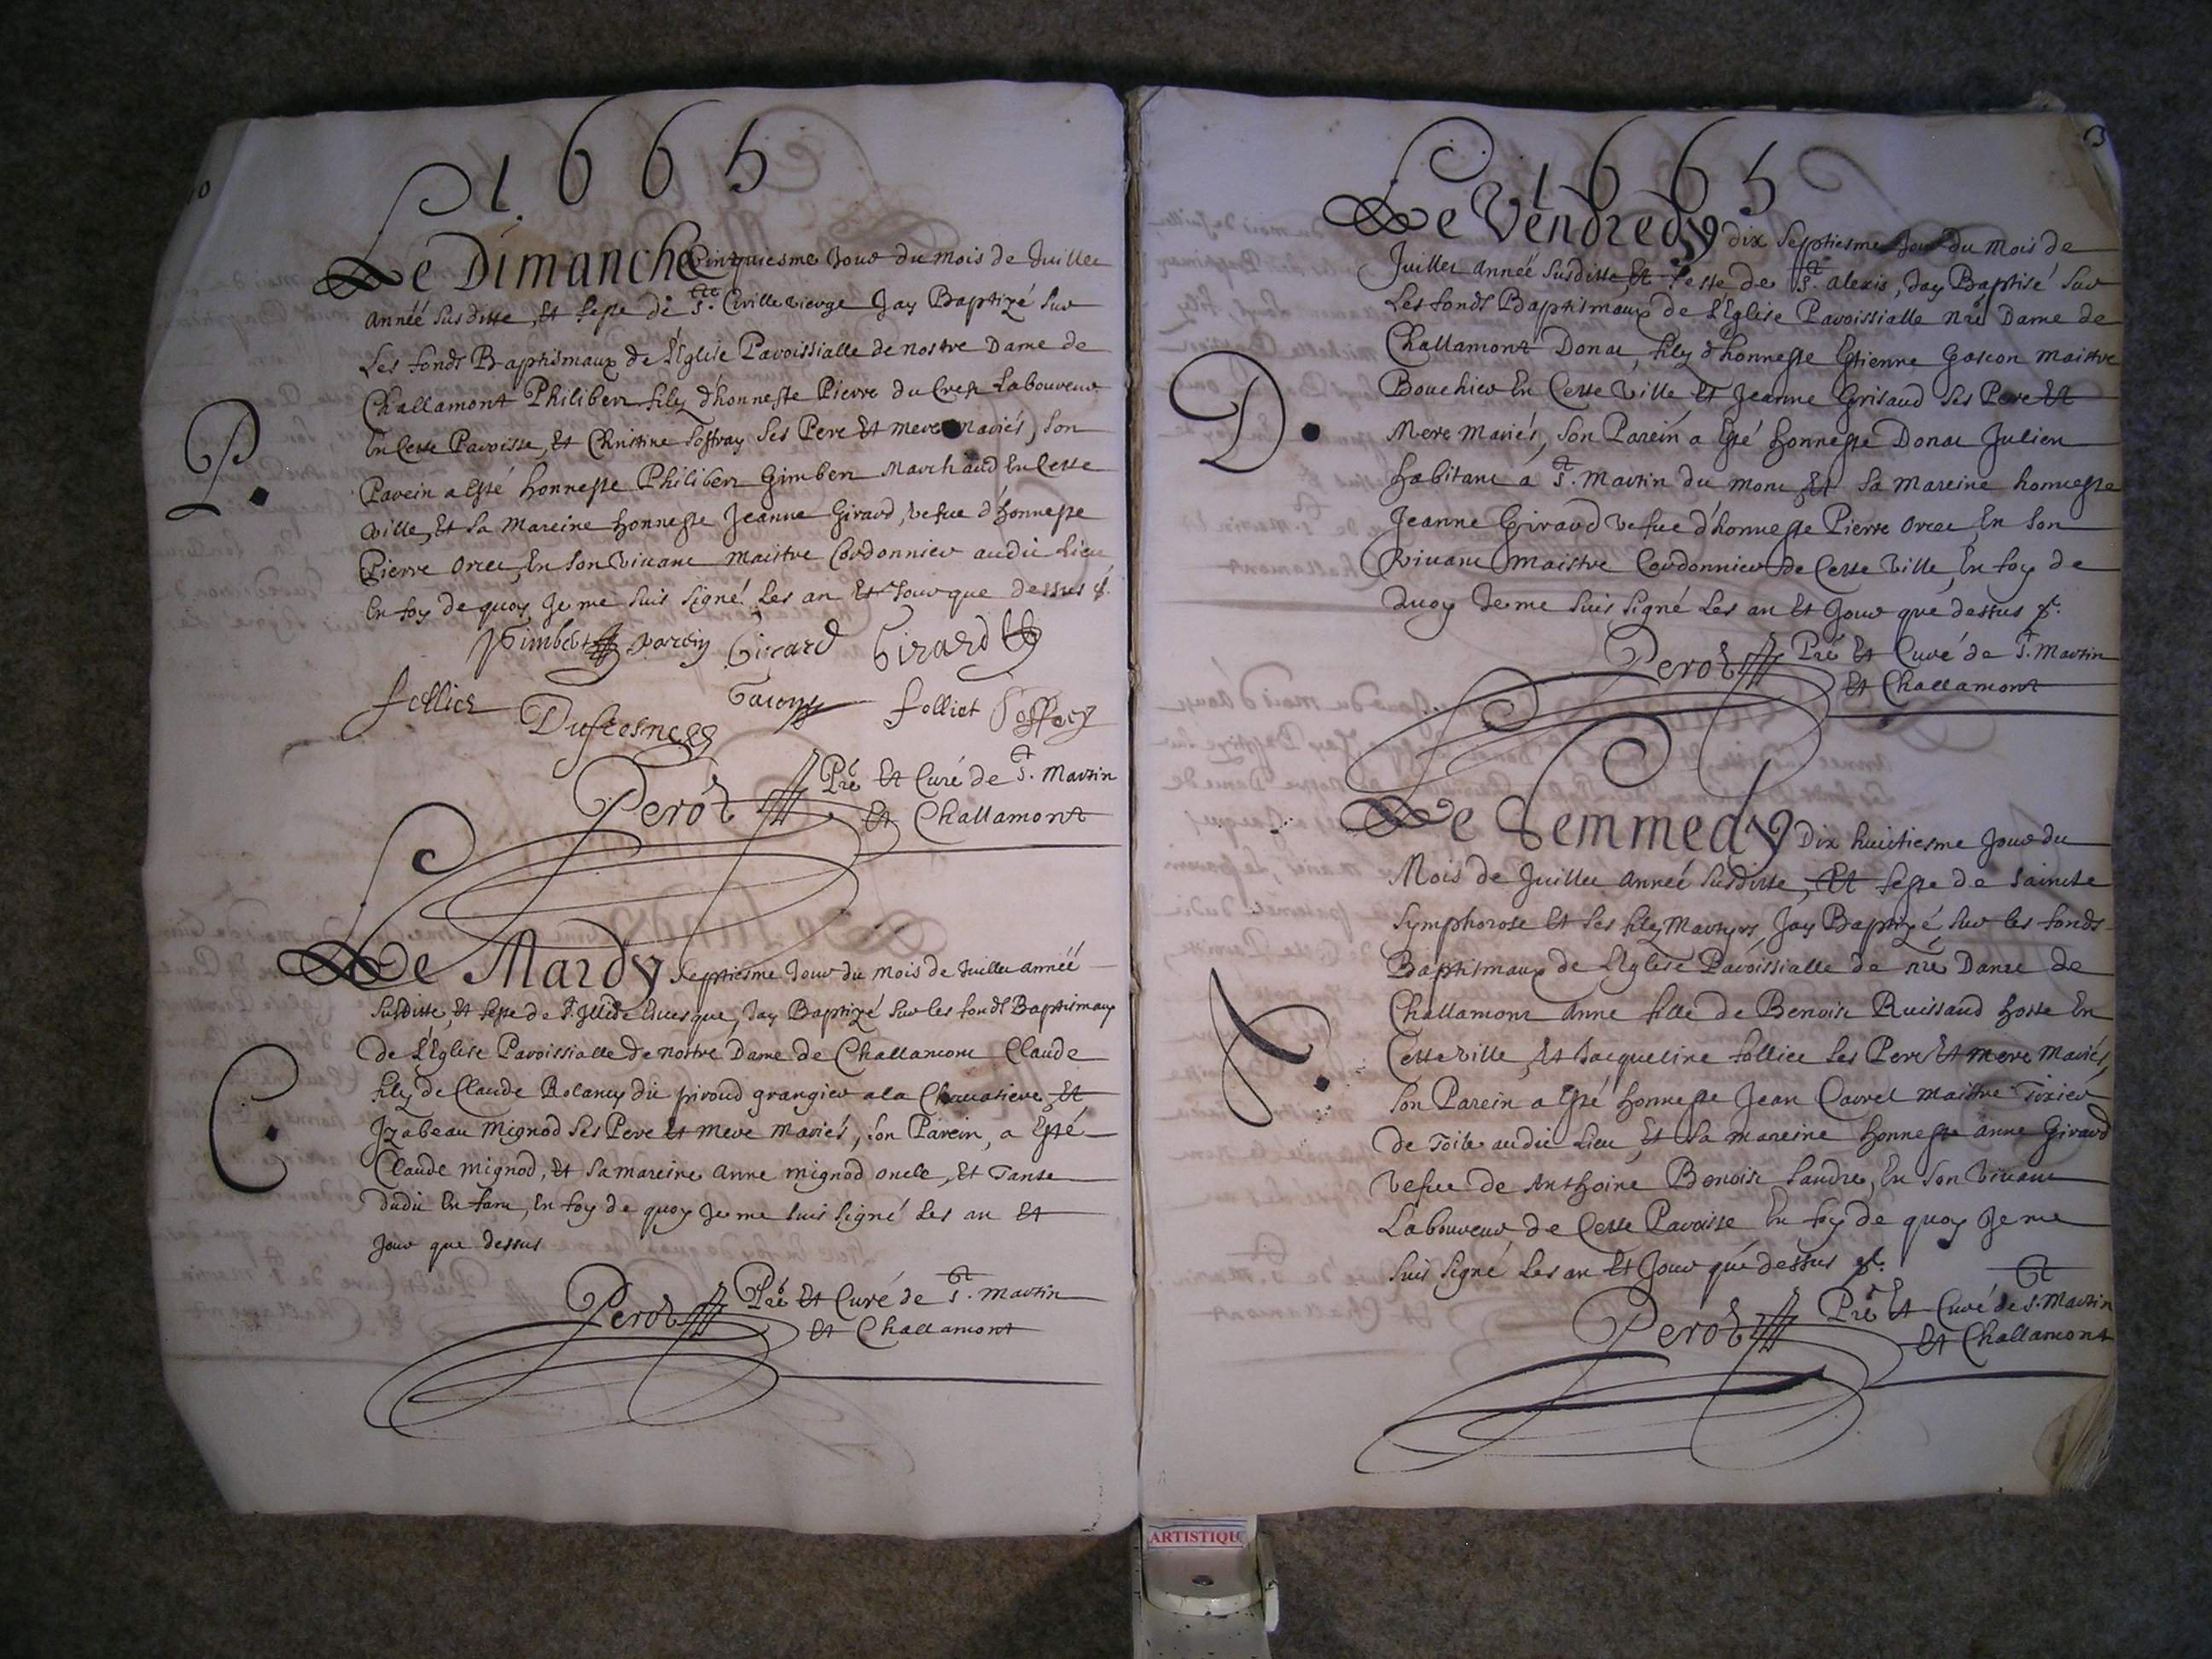 1665
Le Dimanche Cinquiesme Jour du mois de Juillet
Année susditte, Et feste de Ste. Cirille vierge Jay Baptizé sur
Les fonds Baptismaux de L'Eglise Paroissialle de nostre Dame de
Challamont Philibert filz d'honneste Pierre du Crest Laboureur
En Cette Paroisse, Et Christine Joffray Ses Pere Et mere mariés, Son
P.
Parein a Esté honneste Philibert Gimbert Marchand En Cette
ville, Et Sa Mareine honneste Jeanne Girard, vefue d'honneste
Pierre Orcet, En Son Viuant maistre Cordonnier audit Lieu
En foy de quoy Je me suis signé Les an Et Jour que dessus &.
Gimbert parein Girard Girard
folliet Dufresne folliet Joffray
Perot Pre Et Curé de St. Martin
Et Challamont
Le Mardy Septiesme Jour du mois de Juillet année
Susditte, Et feste de St. Euesque, Jay Baptizé Sur les fonds Baptismaux
de L'Eglise Paroissialle de nostre Dame de Challamont Claude
filz de Claude Roland dit piroud grangier a la Et
C.
Izabeau Mignod Ses Pere Et Mere mariés, Son Parein, a Esté
Claude mignod, Et Sa mareine Anne mignod oncle, Et Tante
dudit Enfant, En foy de quoy Je me suis signé Les an Et
Jour que dessus
Perot Pre Et Curé de St. Martin
Et Challamont
1665
Le Vendredy dix Septiesme Jour du Mois de
Juillet année Susditte Et feste de St. Alexis, Jay Baptisé Sur
Les fonds Baptismaux de L'Eglise Paroissialle nre Dame de
Challamont Donat, filz d'honneste Estienne Gascon maistre
Boucher En Cette Ville Et Jeanne Grisaud Ses Pere Et
D.
Mere Mariés, Son Parein a Esté honneste Donat Julien
habitant a St. Martin du mont Et Sa Mareine honneste
Jeanne Girard Vefue d'honneste Pierre Orcet, En Son
Viuant Maistre Cordonnier de Cette Ville, En foy de
Quoy Je me Suis Signé Les an Et Jour que dessus &.
Perot Pre Et Curé de St. Martin
Et Challamont
Le Semmedy Dix huictiesme Jour du
Mois de Juillet Année Susditte, Et feste de Saincte
Symphorose Et Ses filz Martyrs, Jay Baptizé, Sur les fonds
Baptismaux de L'Eglise Paroissialle de nre Dame de
Challamont Anne fille de Benoist Ruissaud Hoste En
Cette ville, Et Jacqueline folliet Ses Pere Et mere Mariés,
A.
Son Parein a Esté honneste Jean Carrel Maistre Tixier
de Toile audit Lieu, Et Sa mareine honneste Anne Girard
Vefue de Anthoine Benoist Landre, En Son Viuant
Laboureur de Cette Paroisse En foy de quoy Je me
Suis Signé Les an Et Jour que dessus &.
Perot Pre Et Curé de St. Martin
Et Challamont
ARTISTIQU